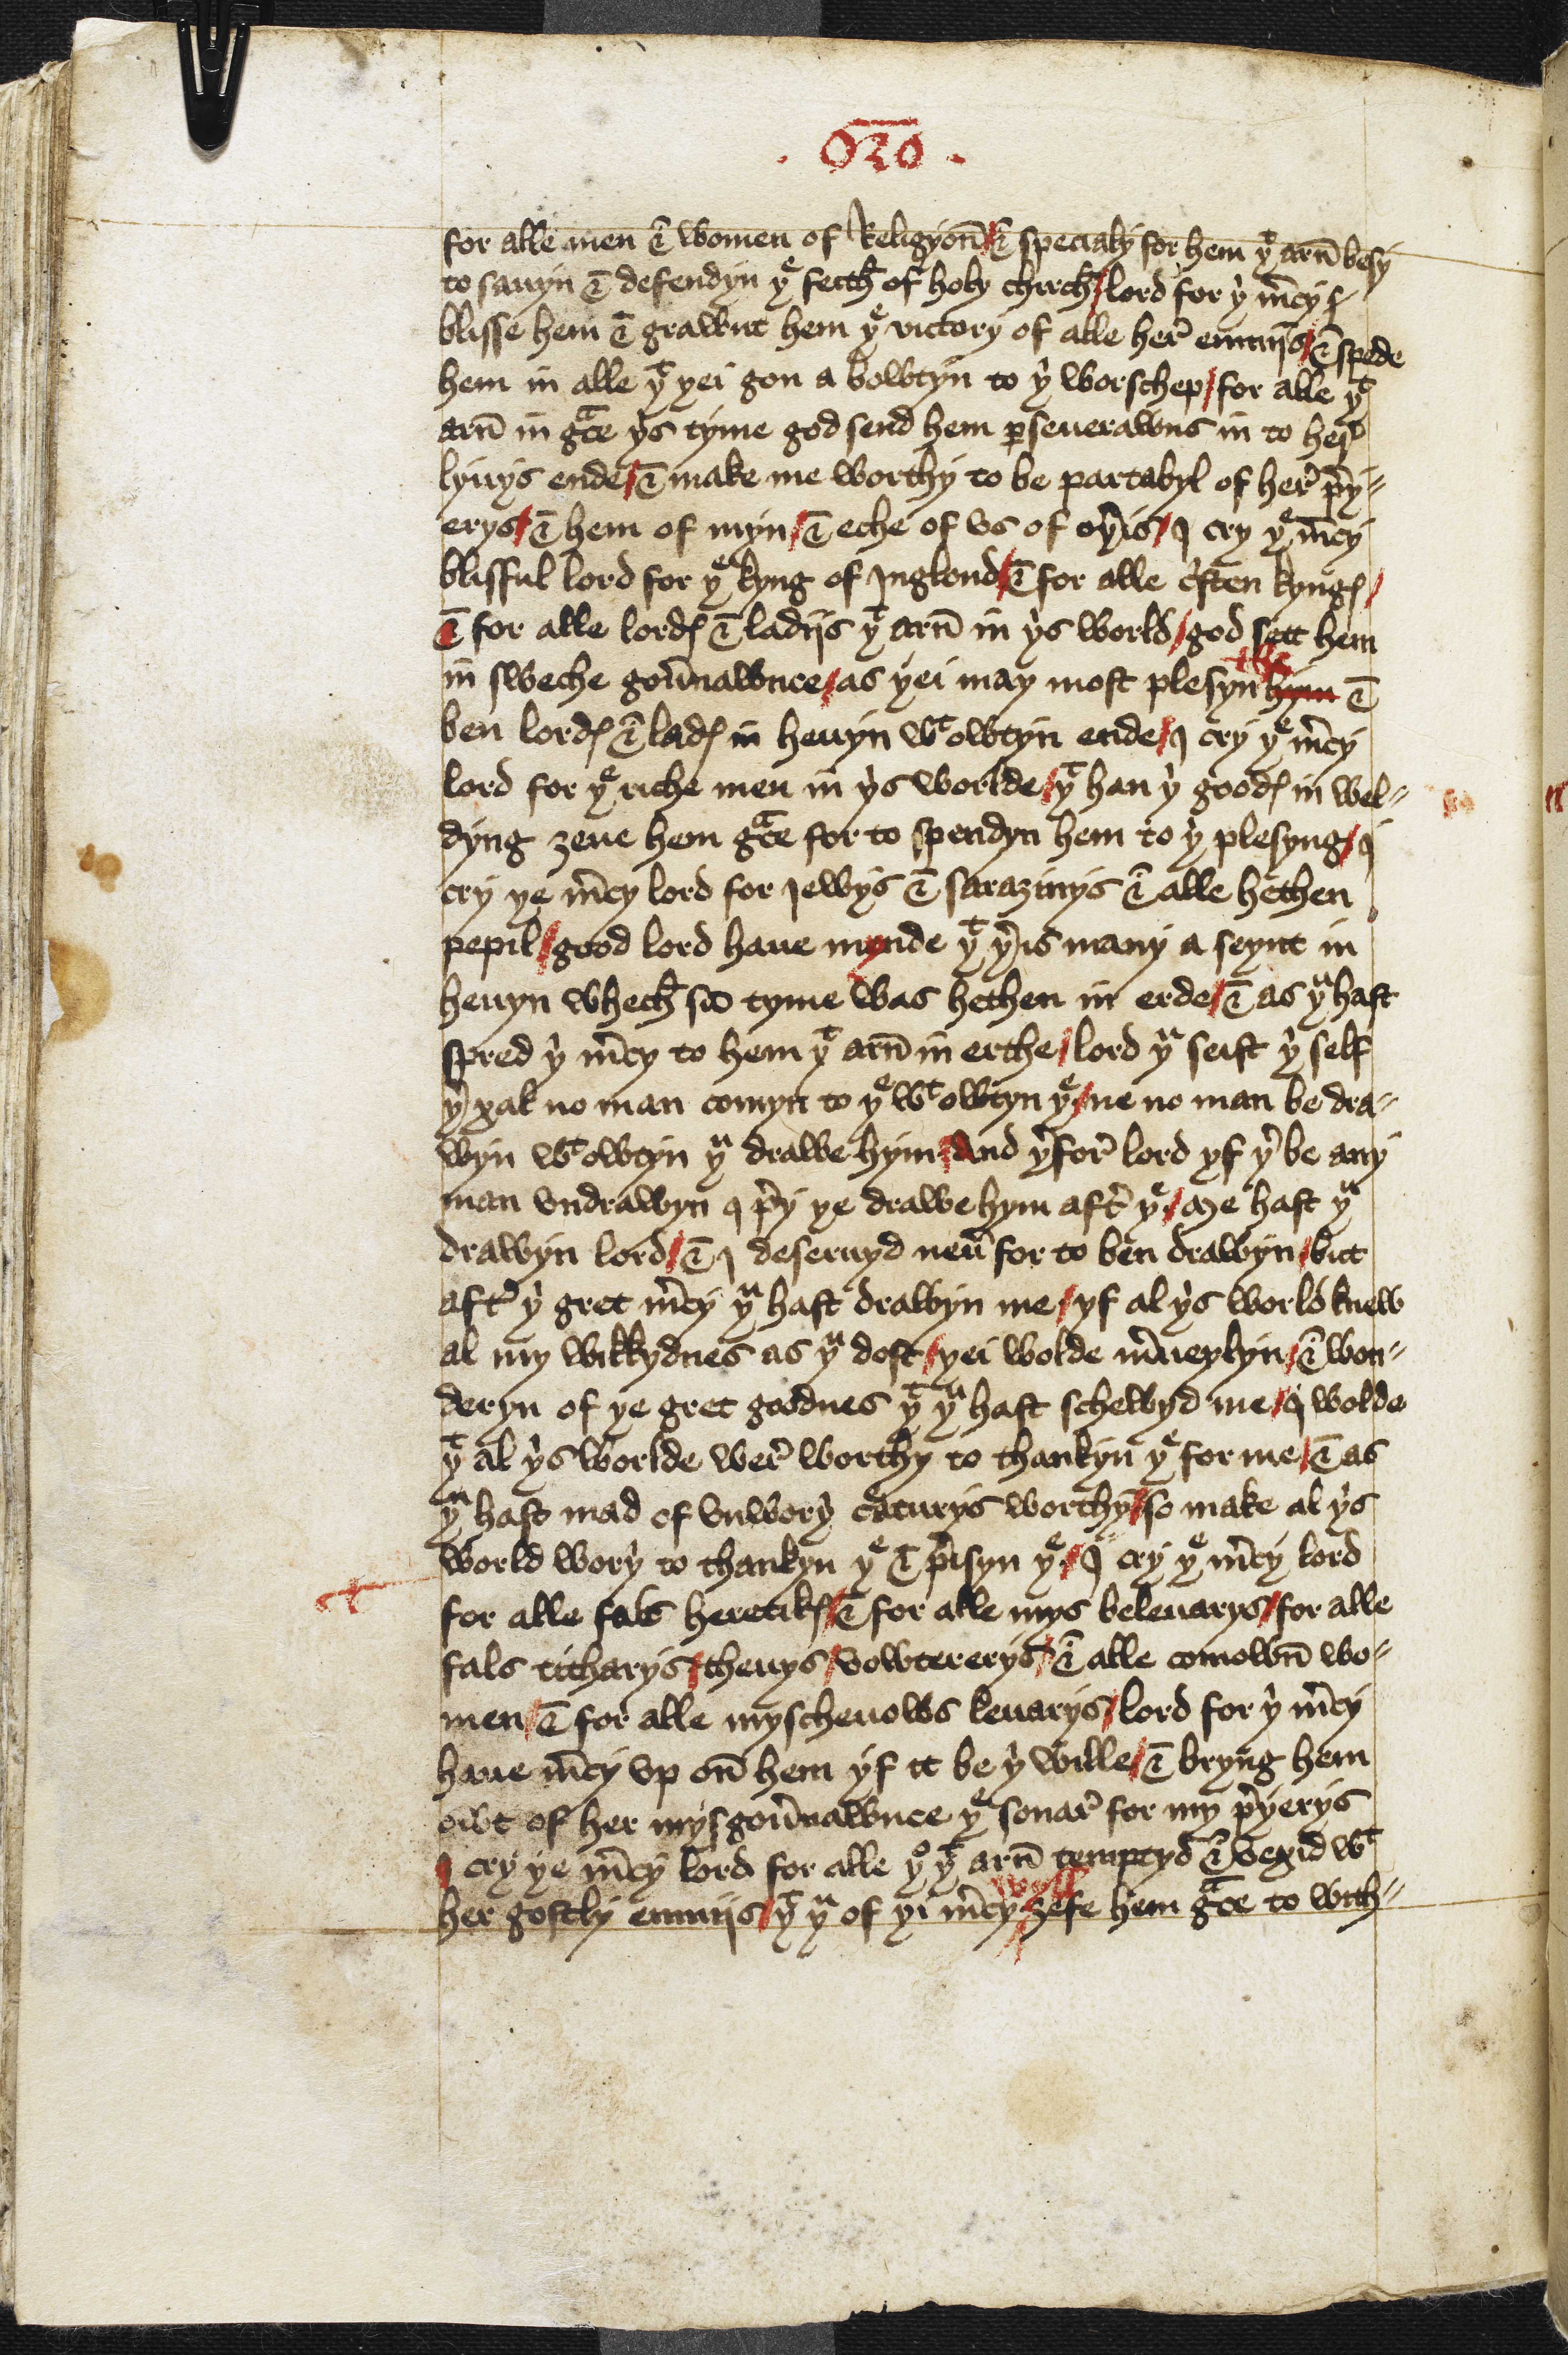 . Oro .
for alle men & women of Religyon̄ / & specialy for hem yͭ arn̄ besy
to sauyn & defendyn yͤ feith of holy chirch / lord for yi m̄cy
blisse hem & grawnt hem yͤ victory of alle her̄ enmijs / & spede
hem in alle yͭ yei gon a bowtyn to yi worschep / for alle yͭ
arn̄ in gͣce yis tyme god send hem ꝑseuerawns in to her̄
lyuys ende / & make me worthy to be partabyl of her̄ p̄y⸗
erys / & hem of myn / & eche of vs of oyr̄is / I cry yͤ m̄cy
blisful lord for yͤ kyng of Inglond / & for alle cͥsten kyngꝭ /
& for alle lordꝭ & ladijs yͭ arn̄ in yis world / god sett hem
in sweche goūnawnce / as yei may most plesyn the hym &
ben lordꝭ & ladꝭ in heuyn wͭ owtyn ende / I cry yͤ m̄cy
lord for yͤ riche men in yis worlde / yͭ han yi goodꝭ in wel⸗
dyng ȝeue hem gͣce for to spendyn hem to yi plesyng / I
cry ye m̄cy lord for Iewys & sarazinys & alle hethen
pepil / good lord haue mynde yͭ yr̄ is many a seynt in
heuyn whech sū tyme was hethen in erde / & as yͧ hast
spred yi m̄cy to hem yͭ arn̄ in erthe / lord yͧ seist yi self
yr̄ xal no man comyn to yͤ wͭ owtyn yͤ / ne no man be dra⸗
wyn wͭ owtyn yͧ drawe hym / And yr̄for̄ lord yf yr̄ be any
man vndrawyn I p̄y ye drawe hym aftr̄ yͤ / Me hast yͧ
drawyn lord / & I deseruyd neū for to ben drawyn / but
aftr̄ yi gret m̄cy yͧ hast drawyn me / yf al yis world knew
al my wikkydnes as yͧ dost / yei wolde m̄ueylyn / & won⸗
deryn of ye gret goodnes yͭ yͧ hast schewyd me / I wolde
yͭ al yis worlde wer̄ worthy to thankyn yͤ for me / & as
yͧ hast mad of vnworyi cͣturys worthy / so make al yis
world woryi to thankyn yͤ & p̄isyn yͤ / I cry yͤ m̄cy lord
for alle fals heretikꝭ / & for alle mys beleuarys / for alle
fals titharys / theuys / vowtererys / & alle comown̄ wo⸗
men / & for alle myscheuows leuarys / lord for yi m̄cy
haue m̄cy vp on̄ hem yf it be yi wille / & bryng hem
owt of her mysgoūnawnce yͤ sonar̄ for my p̄yerys
I cry ye m̄cy lord for alle yͦ yͭ arn̄ temptyd & vexid wͭ
her gostly enmijs / yͭ yͧ of yi m̄cy wyll ȝefe hem gͣce to with⸗